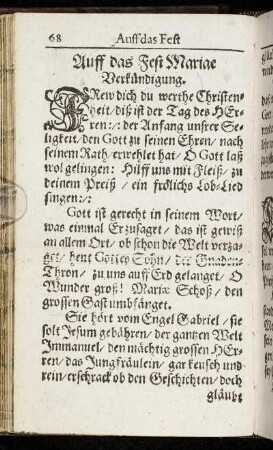 68 Auff das Fest
Auff das Fest Mariae
Verkündigung.
FRew dich du werthe Christen-
heit/ diß ist der Tag des HEr-
ren:/: der Anfang unsrer Se-
ligkeit/ den Gott zu seinen Ehren/ nach
seinem Rath/ erwehlet hat/ O Gott laß
wol gelingen: Hilff uns mit Fleiß/ zu
deinem Preiß/ ein frölichs Lob-Lied
singen:/:
Gott ist gerecht in seinem Wort/
was einmal Er zusaget/ das ist gewiß
an allem Ort/ ob schon die Welt verza-
get/ heut Gottes Sohn/ der Gnaden-
Thron/ zu uns auff Erd gelanget/ O
Wunder groß! Mariæ Schoß/ den
grossen Gast umbfänget.
Sie hört vom Engel Gabriel/ sie
solt Jesum gebähren/ der gantzen Welt
Immanuel/ den mächtig grossen HEr-
ren/ das Jungfräulein/ gar keusch und
rein/ erschrack ob den Geschichten/ doch
gläubt